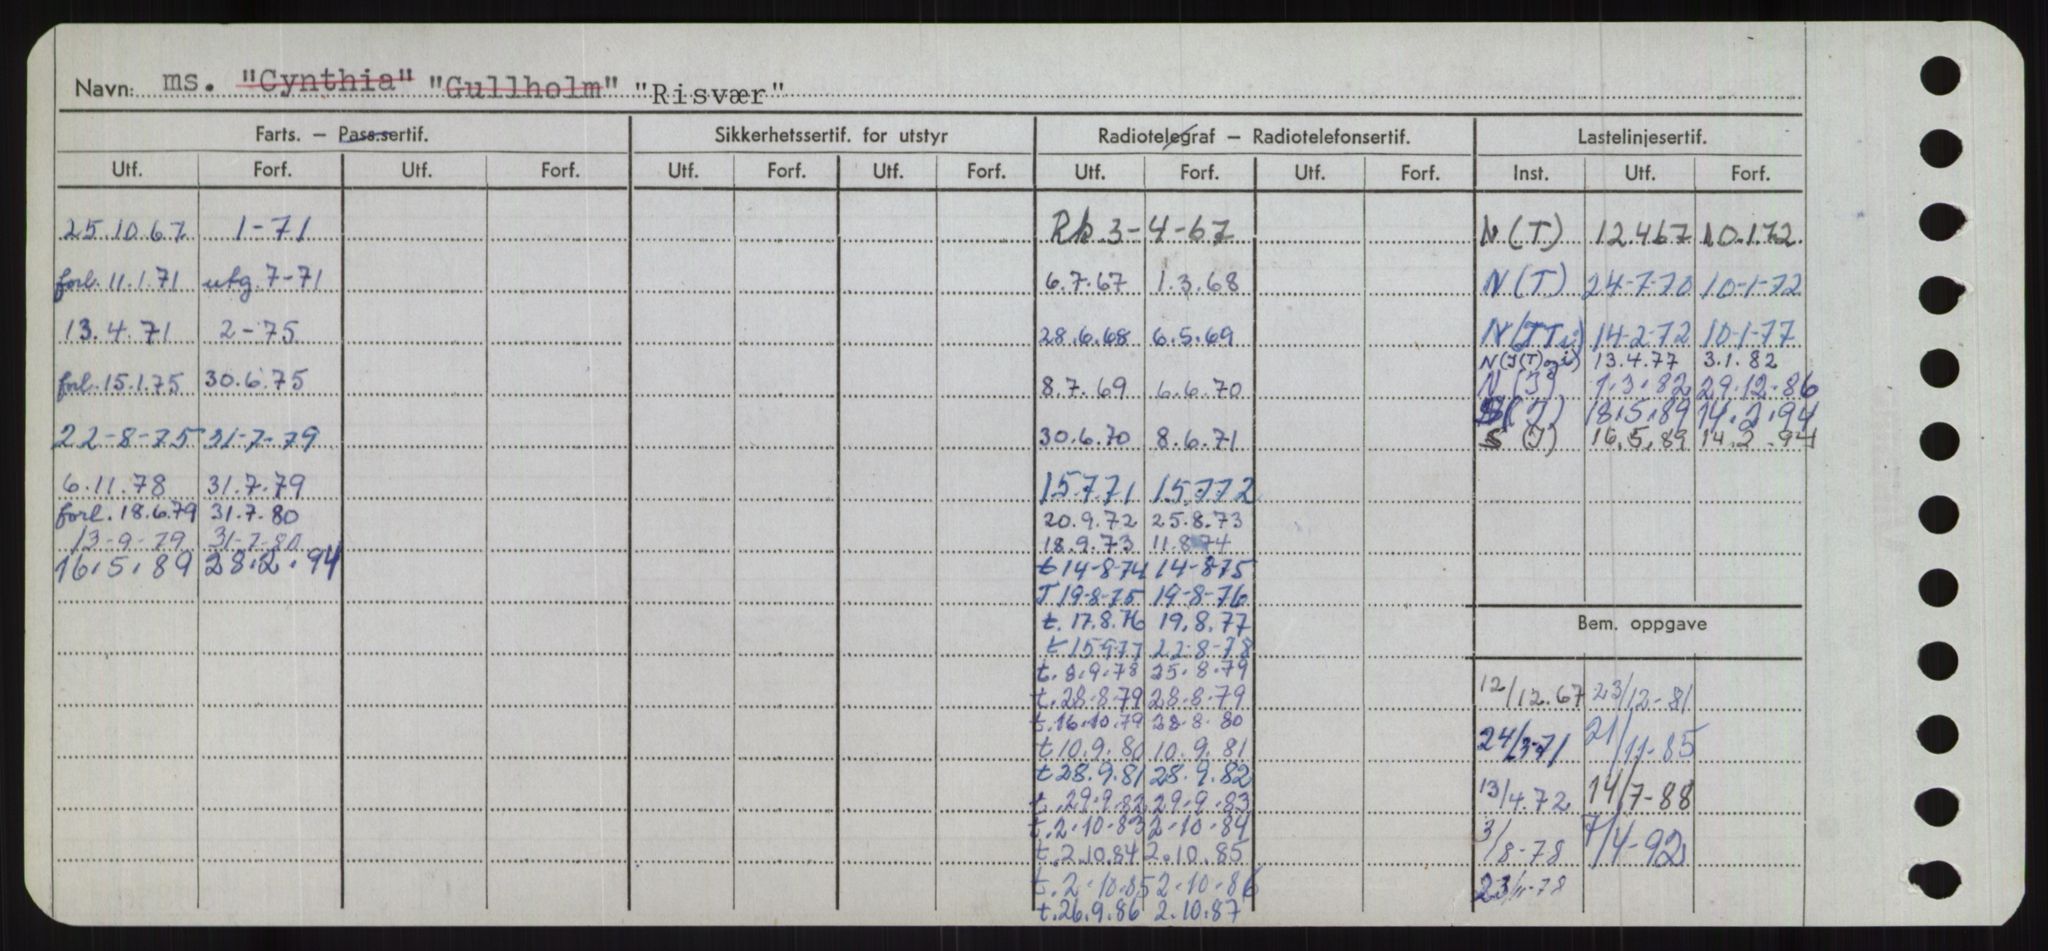 Navn: ms. "Cynthia" "Gullholm" "Risvær"
Farts. — Pass.sertif. Sikkerhetssertif. for utstyr Radiotelegraf — Radiotelefonsertif. Lastelinjesertif.
Utf. Forf. Utf. Forf. Utf. Forf. Utf. Forf. Utf. Forf. Utf. Forf. Inst. Utf. Forf.
25.10.67 1-71 3-4-67 N (T) 12.4.67 10.1.72.
forl. 11.1.71 utg. 7-71 6.7.67 1.3.68 N (T) 24-7-70 10-1-72
13.4.71 2-75 28.6.68 6.5.69 14-2-72 10-1-77
13.4.77 3.1.82
forl. 15.1.75 30.6.75 8.7.69 6.6.70 N (J) 1.3.82 29.12.86
(J) 18.5.89 14.2.94
22-8-75 31-7-79 30.6.70 8.6.71 S (J) 16.5.89 14.2.94
6.11.78 31.7.79 15.7.71 15.7.72
forl. 18.6.79 31.7.80 20.9.72 25.8.73
13-9-79 31-7-80 18.9.73 11.8.74
16.5.89 28.2.94 t 14-8-74 14-8-75
T 19-8-75 19-8-76
t. 17.8.76 19.8.77
t 15977 22-8-78
t. 8.9.78 25.8.79
t. 28-8-79 28.8.79
t. 16.10.79 28.8.80
t 10.9.80 10.9.81
t 28.9.81 28.9.82
t. 29.9.82 29.9.83
t. 2.10.83 2.10.84
t. 2.10.84 2.10.85
t. 2.10.85 2.10.86
t. 26.9.86 2.10.87
Bem. oppgave
12/12.67 23/12-81
24/3-71 21/11-85
13/4.72 14/7-88
3/8-78 7/4-92
23/11-78